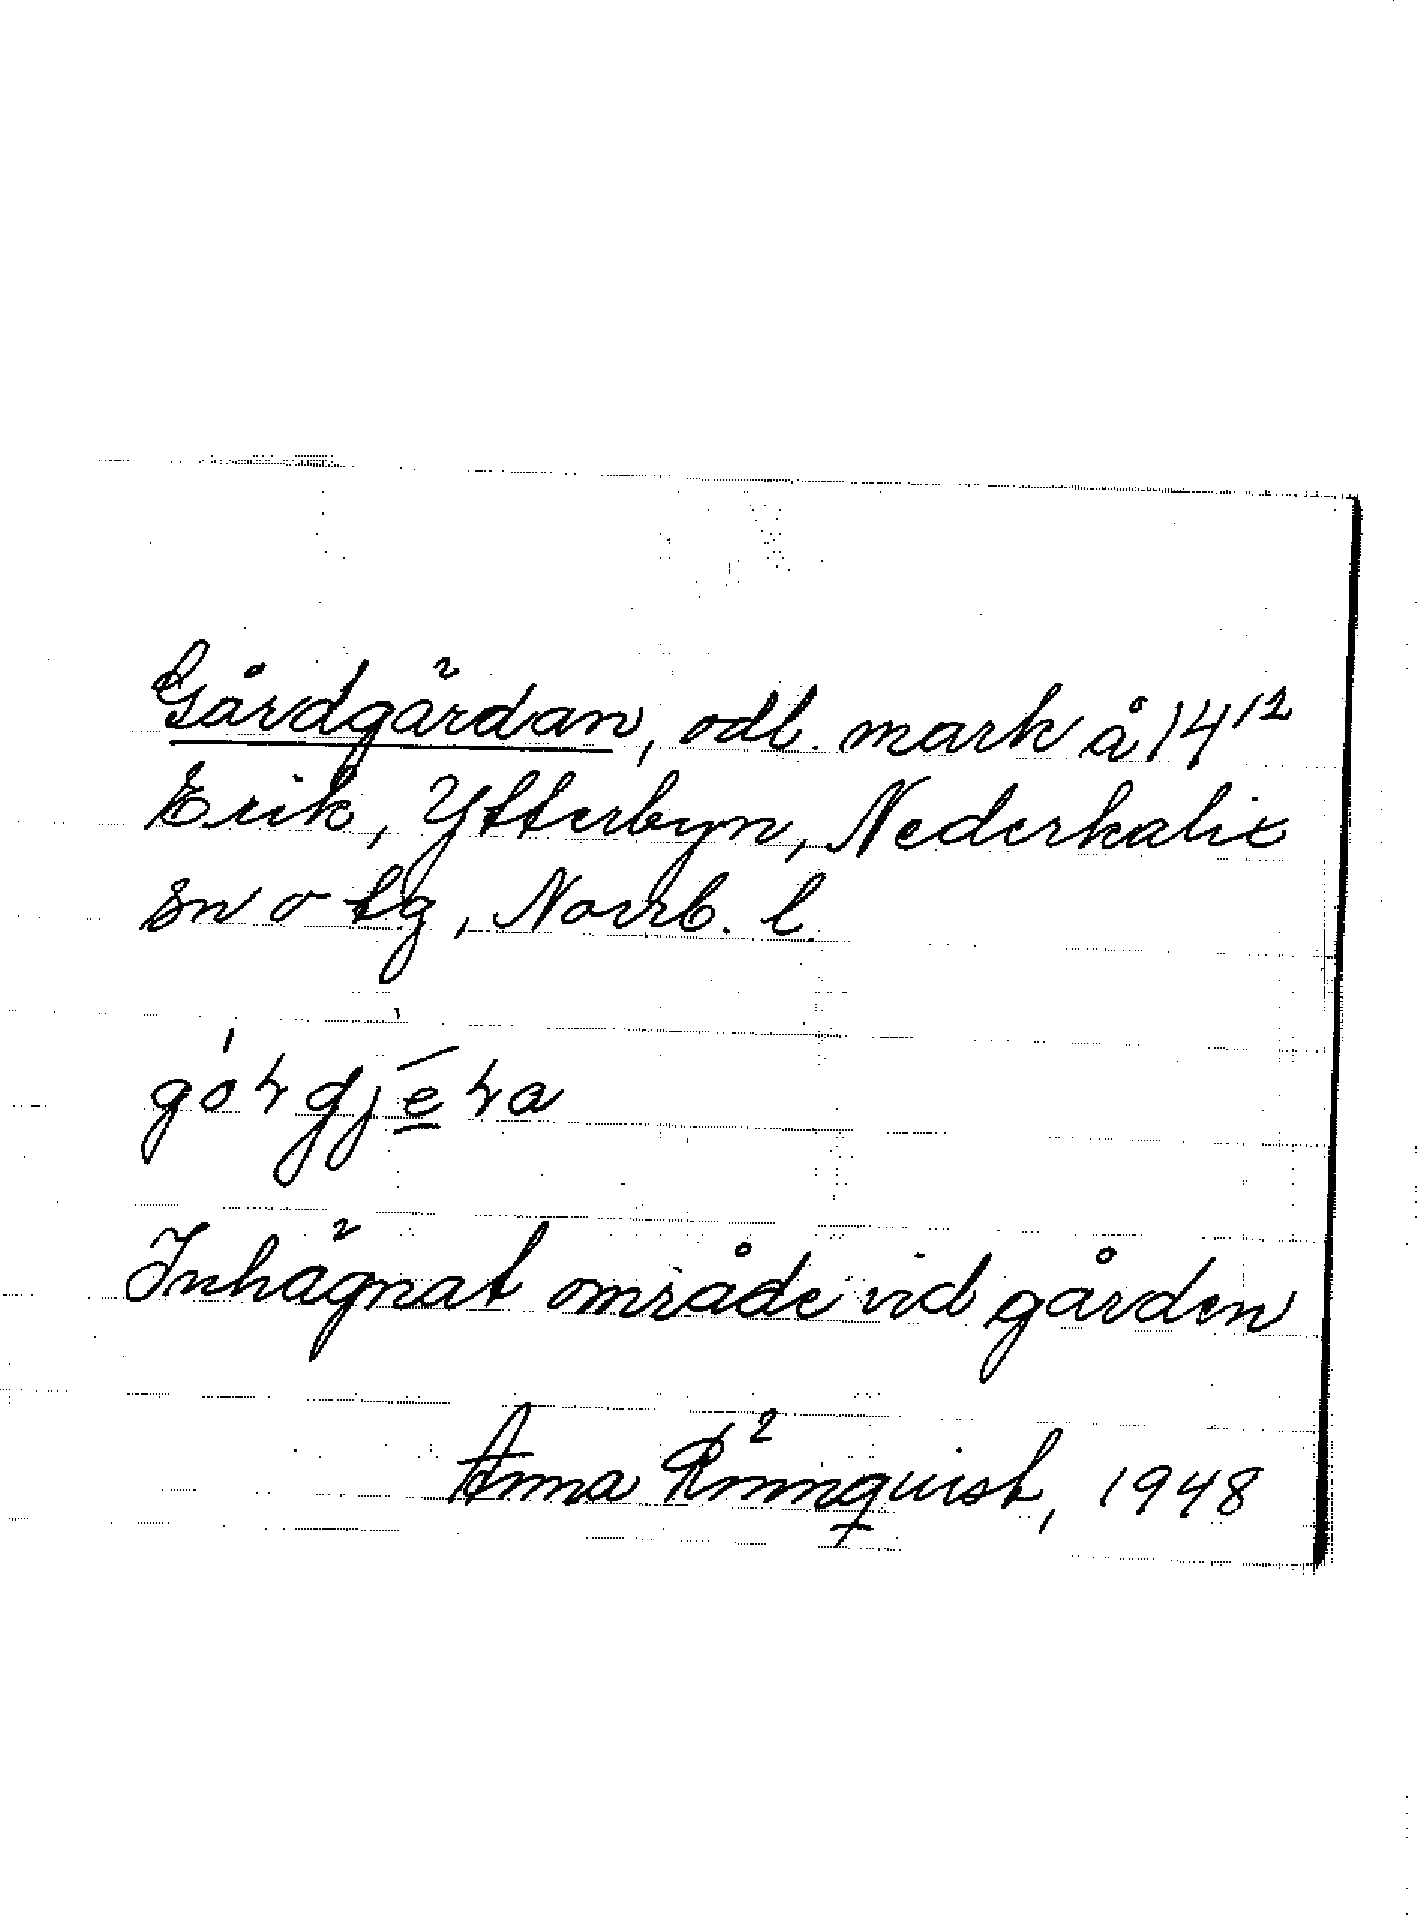 Gårdgärdan, odl. mark å 14¹²
Erik, Ytterbyn, Nederkalix
sn o tg, Norrb. l.
Inhägnat område vid gården
Anna Rönnquist, 1948